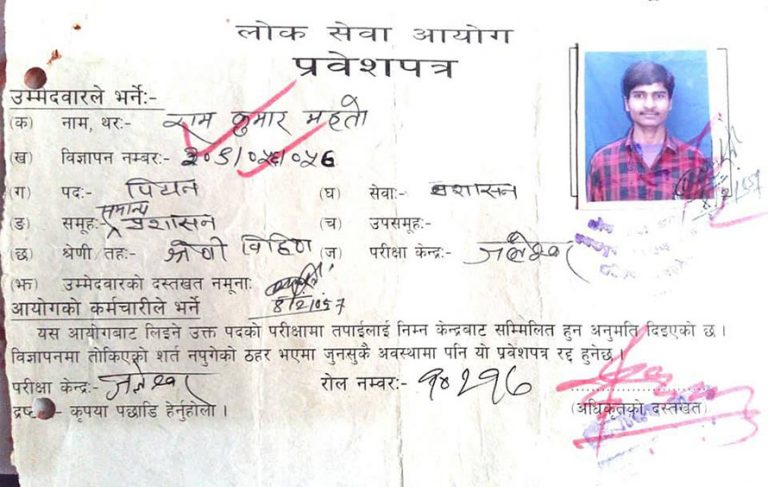 लोक सेवा आयोग
प्रवेशपत्र
उम्मेदवारले भर्नेः-
(क) नाम, थरः- राम कुमार महतो
(ख) विज्ञापन नम्बरः- २०५/०५६/०५६
(ग) पदः- पियन (घ) सेवाः- प्रशासन
(ङ) समूहः- सामान्य प्रशासन (च) उपसमूहः-
(छ) श्रेणी तहः- श्रेणी विहिण (ज) परीक्षा केन्द्रः- जलेश्वर
(झ) उम्मेदवारको दस्तखत नमूनाः
8/2/057
आयोगको कर्मचारीले भर्ने
यस आयोगबाट लिइने उक्त पदको परीक्षामा तपाईलाई निम्न केन्द्रबाट सम्मिलित हुन अनुमति दिइएको छ।
विज्ञापनमा तोकिएको शर्त नपुगेको ठहर भएमा जुनसुकै अवस्थामा पनि यो प्रवेशपत्र रद्द हुनेछ।
परीक्षा केन्द्रः- जलेश्वर रोल नम्बरः- १०२१६
(अधिकृतको दस्तखत)
कृपया पछाडि हेर्नुहोला।